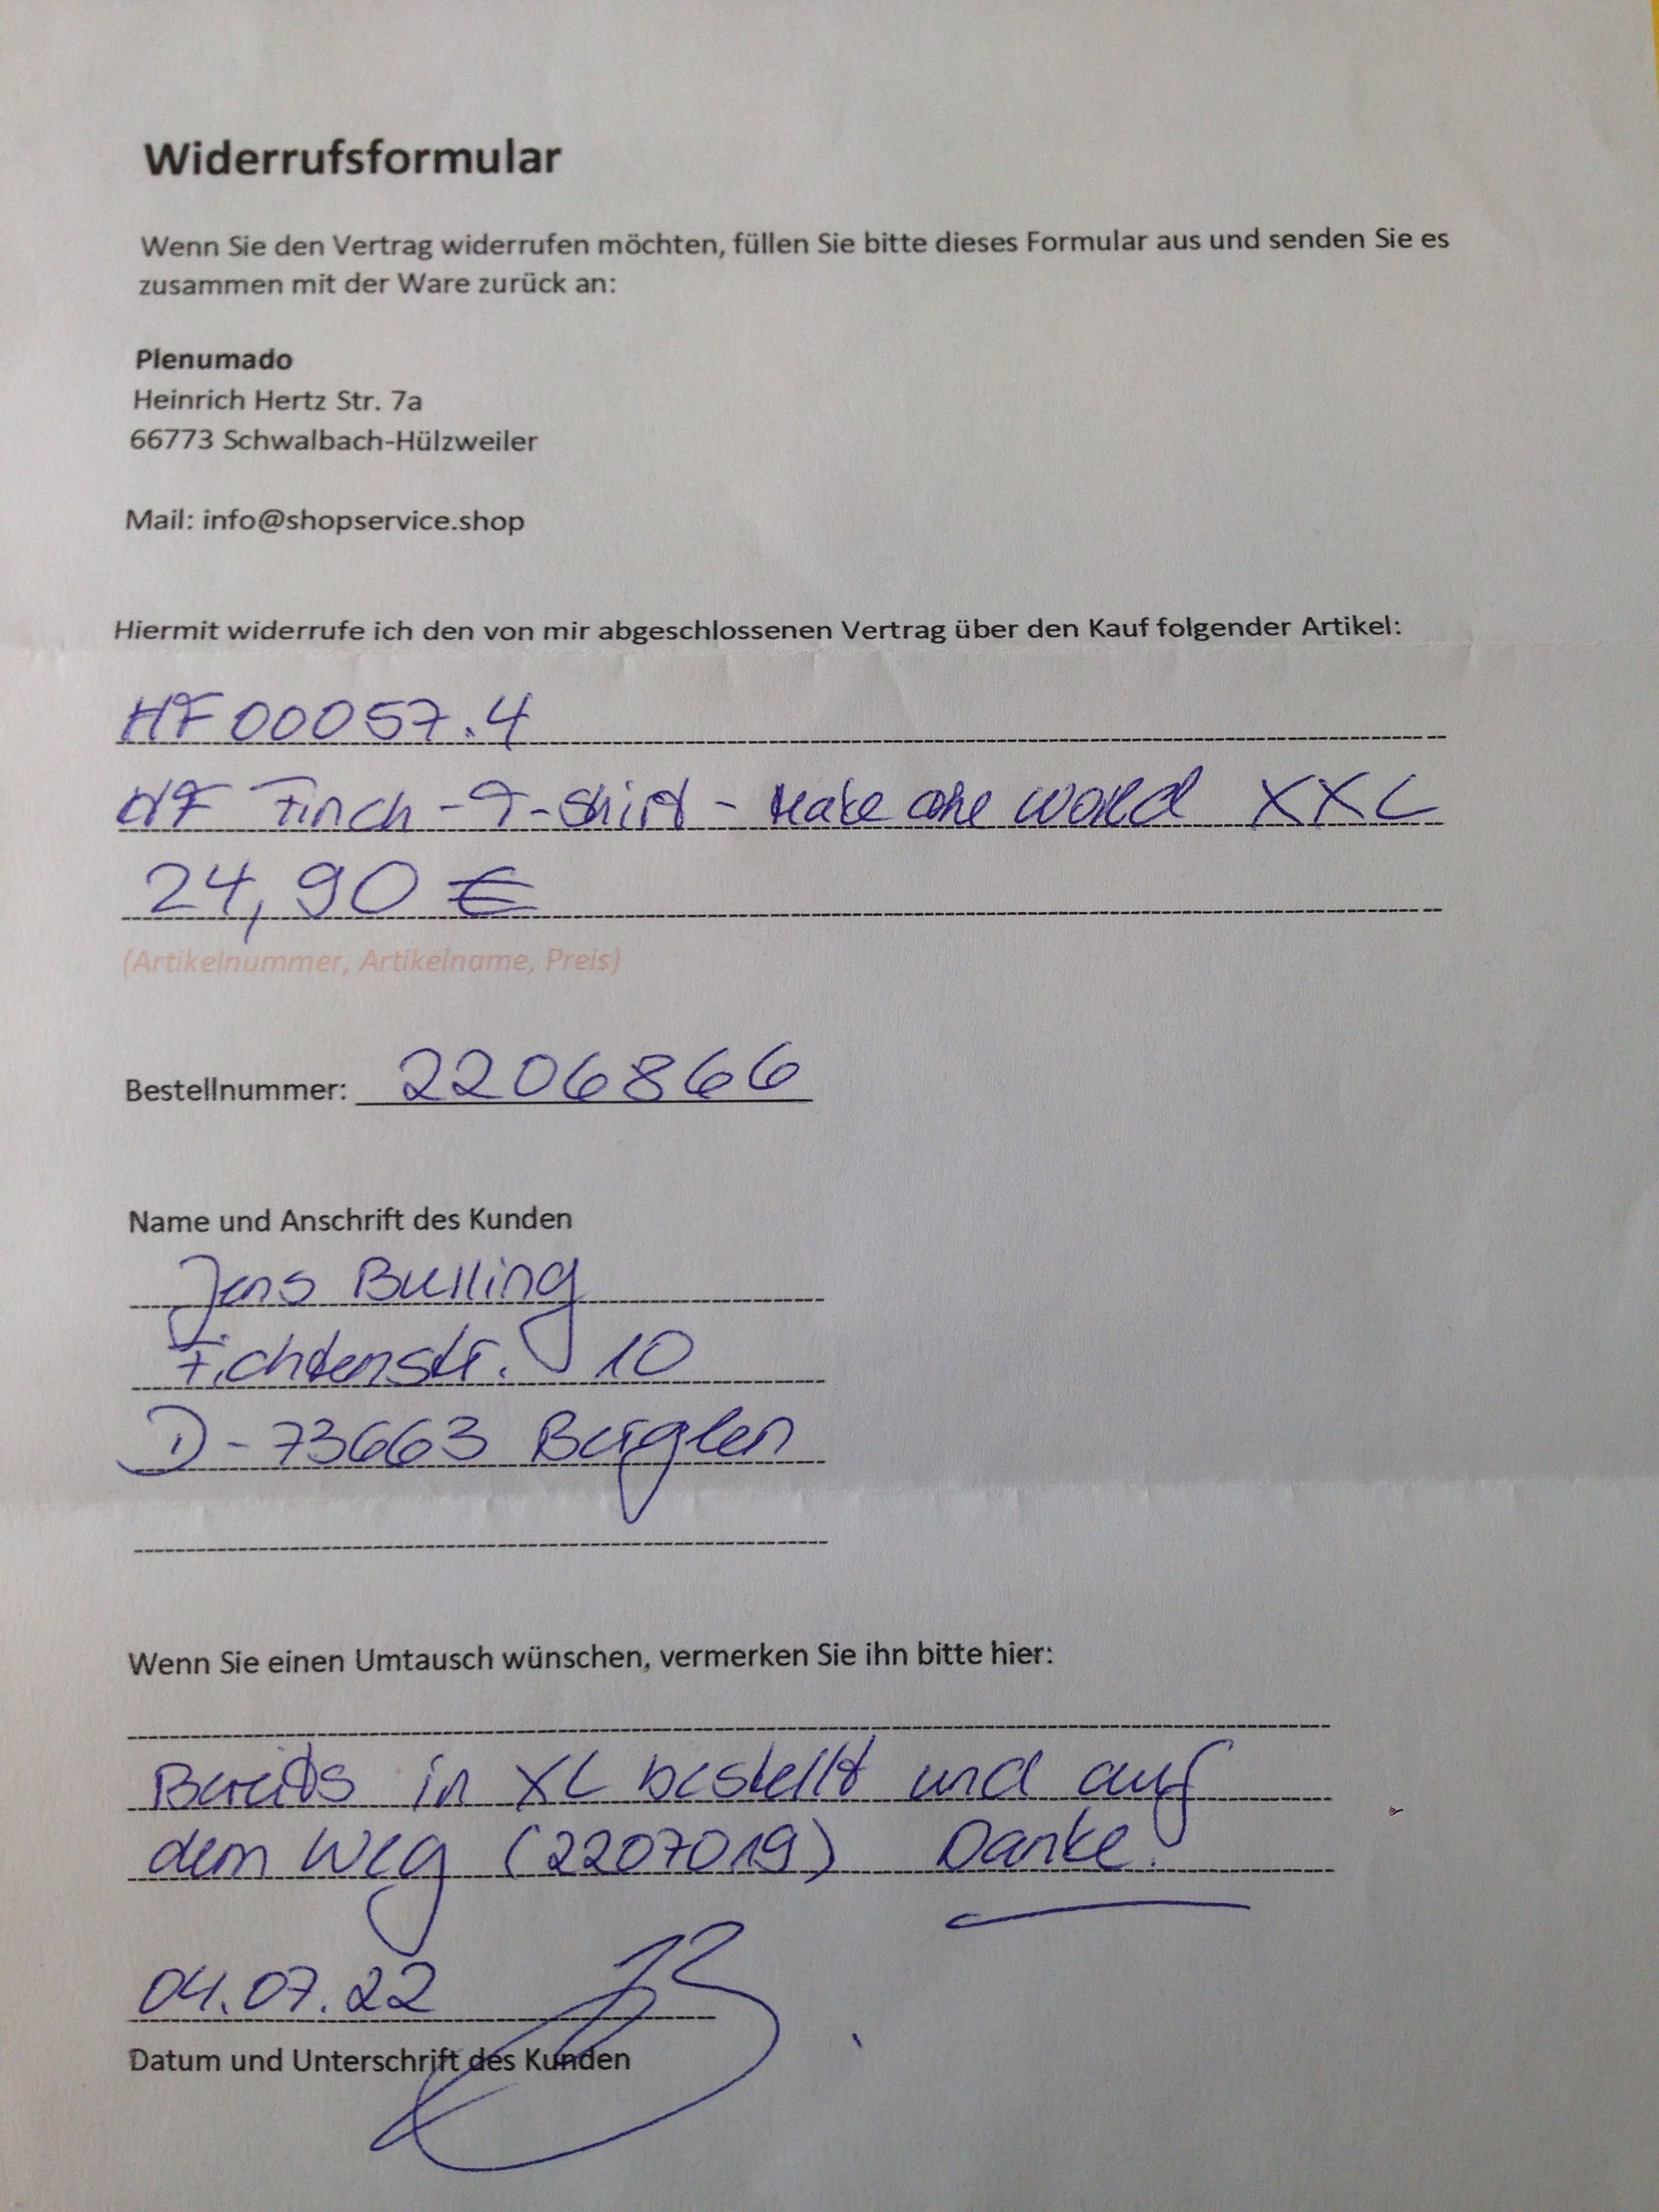 Widerrufsformular
Wenn Sie den Vertrag widerrufen möchten, füllen Sie bitte dieses Formular aus und senden Sie es
zusammen mit der Ware zurück an:
Plenumado
Heinrich Hertz Str. 7a
66773 Schwalbach-Hülzweiler
Mail: info@shopservice.shop
Hiermit widerrufe ich den von mir abgeschlossenen Vertrag über den Kauf folgender Artikel:
HF00057.4
HF Finch-T-Shirt - Make one world XXL
24,90 €
(Artikelnummer, Artikelname, Preis)
Bestellnummer: 2206866
Name und Anschrift des Kunden
Jens Bulling
Fichtenstr. 10
D-73663 Berglen
Wenn Sie einen Umtausch wünschen, vermerken Sie ihn bitte hier:
Bereits in XL bestellt und auf
dem Weg (2207019) Danke!
04.07.22
Datum und Unterschrift des Kunden